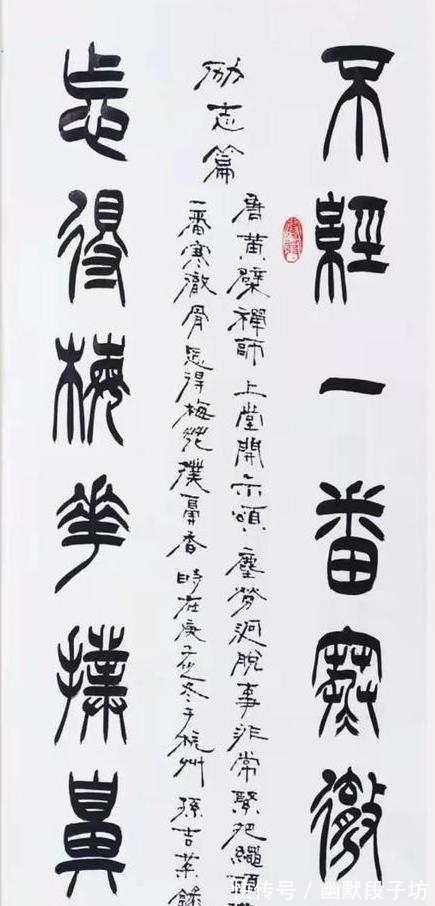 不經一番寒徹
励志篇
唐黄檗禪師上堂開示頌塵勞迥脫事非常緊把繩頭
一番寒徹骨怎得梅花撲鼻香時在庚子冬于杭州孫吉
怎得梅花撲鼻
快传号 / 幽默段子坊